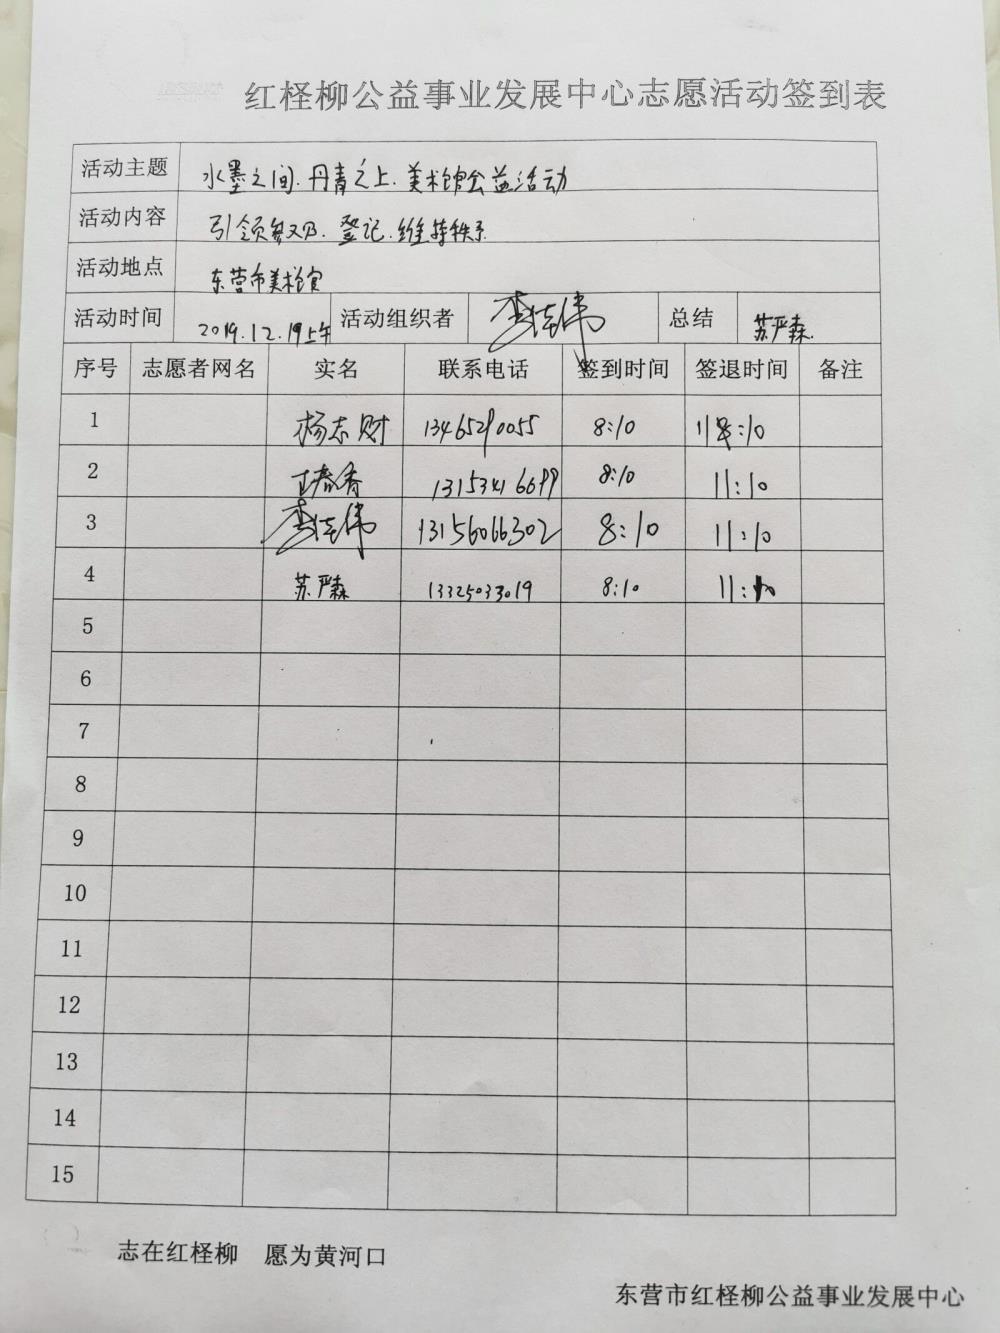 红柽柳公益事业发展中心志愿活动签到表
活动主题 水墨之间.丹青之上.美术馆公益活动
活动内容 引领参观.登记.维持秩序
活动地点 东营市美术馆
活动时间 2019.12.19上午 活动组织者 李佳伟 总结 苏严森.
序号 志愿者网名 实名 联系电话 签到时间 签退时间 备注
1 杨志财 13465290055 8:10 11:10
2 春香 13153416699 8:10 11:10
3 李佳伟 13156066302 8:10 11:10
4 苏严森 13325033019 8:10 11:10
5
6
7
8
9
10
11
12
13
14
15
志在红柽柳 愿为黄河口
东营市红柽柳公益事业发展中心